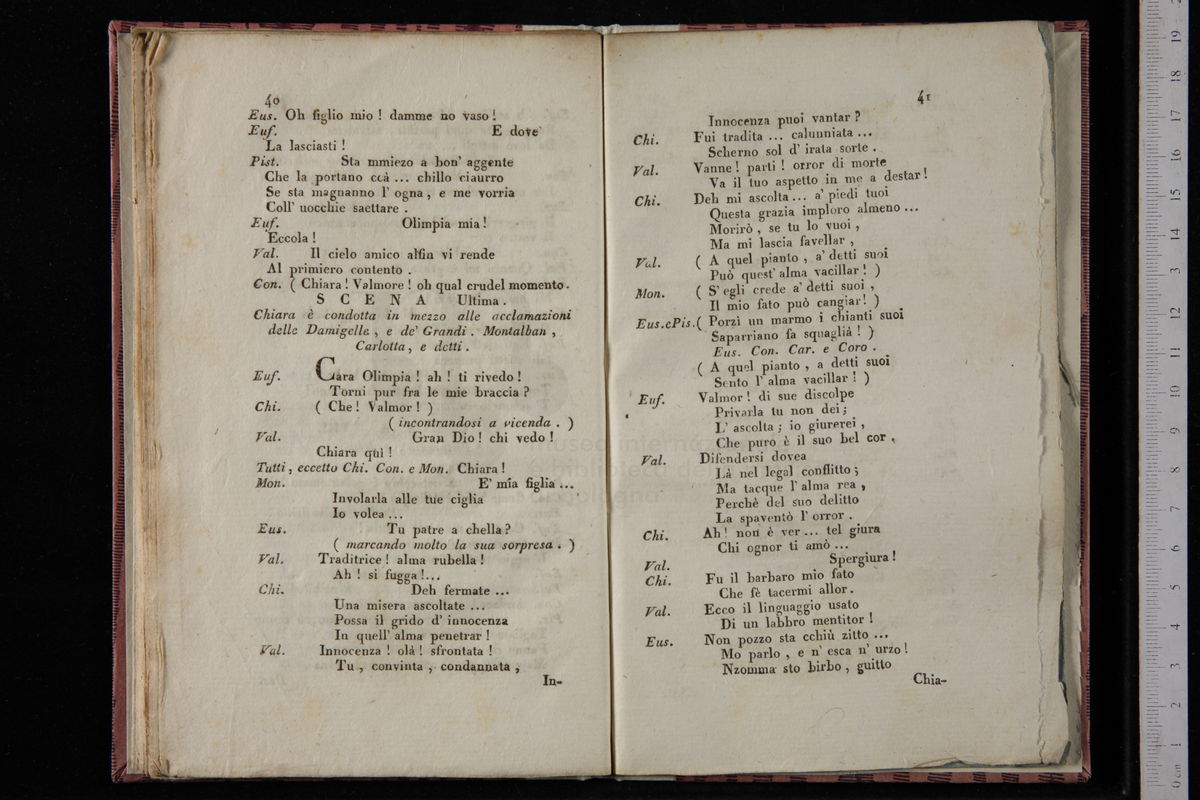 40
Eus. Oh figlio mio ! damme no vaso !
Euf. E dove
La lasciasti !
Pist. Sta mmiezo a bon' aggente
Che la portano ccà ... chillo ciaurro
Se sta magnanno l' ogna , e me vorria
Coll' uocchie saettare .
Euf. Olimpia mia !
Eccola !
Val. Il cielo amico alfin vi rende
Al primiero contento .
Con. ( Chiara ! Valmore ! oh qual crudel momento .
S C E N A Ultima .
Chiara è condotta in mezzo alle acclamazioni
delle Damigelle , e de' Grandi . Montalban ,
Carlotta , e detti .
Euf. Cara Olimpia ! ah ! ti rivedo !
Torni pur fra le mie braccia ?
Chi. ( Che ! Valmor ! )
( incontrandosi a vicenda . )
Val. Gran Dio ! chi vedo !
Chiara quì !
Tutti , eccetto Chi. Con. e Mon. Chiara !
Mon. E' mia figlia ...
Involarla alle tue ciglia
Io volea ...
Eus. Tu patre a chella ?
( marcando molto la sua sorpresa . )
Val. Traditrice ! alma rubella !
Ah ! si fugga !...
Chi. Deh fermate ...
Una misera ascoltate ...
Possa il grido d' innocenza
In quell' alma penetrar !
Val. Innocenza ! olà ! sfrontata !
Tu , convinta , condannata ,
In-
41
Innocenza puoi vantar ?
Chi. Fui tradita ... calunniata ...
Scherno sol d' irata sorte .
Val. Vanne ! parti ! orror di morte
Va il tuo aspetto in me a destar !
Chi. Deh mi ascolta ... a' piedi tuoi
Questa grazia imploro almeno ...
Morirò , se tu lo vuoi ,
Ma mi lascia favellar ,
Val. ( A quel pianto , a' detti suoi
Può quest' alma vacillar ! )
Mon. ( S' egli crede a' detti suoi ,
Il mio fato può cangiar ! )
Eus.ePis.( Porzì un marmo i chianti suoi
Saparriano fa squaglià ! )
Eus. Con. Car. e Coro .
( A quel pianto , a detti suoi
Sento l' alma vacillar ! )
Euf. Valmor ! di sue discolpe
Privarla tu non dei ;
L' ascolta ; io giurerei ,
Che puro è il suo bel cor ,
Val. Difendersi dovea
Là nel legal conflitto ;
Ma tacque l' alma rea ,
Perchè del suo delitto
La spaventò l' orror .
Chi. Ah ! non è ver ... tel giura
Chi ognor ti amò ...
Val. Spergiura !
Chi. Fu il barbaro mio fato
Che fè tacermi allor .
Val. Ecco il linguaggio usato
Di un labbro mentitor !
Eus. Non pozzo sta cchiù zitto ...
Mo parlo , e n' esca n' urzo !
Nzomma sto birbo , guitto
Chia-